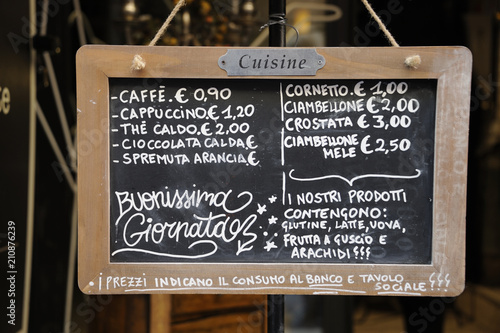 Cuisine
-CAFFÈ.€ 0,90
-CAPPUCCINO.€ 1,20
-THÈ CALDO.€ 2,00
-CIOCCOLATA CALDA€
-SPREMUTA ARANCIA.€
CORNETTO.€ 1,00
CIAMBELLONE €2,00
CROSTATA € 3,00
CIAMBELLONE
MELE € 2,50
BUONISSIMA
Giornata
I NOSTRI PRODOTTI
CONTENGONO:
GLUTINE, LATTE, UOVA,
FRUTTA A GUSCIO E
ARACHIDI
¡ PREZZI INDICANO IL CONSUMO AL BANCO E TAVOLO
SOCIALE
210876239
Adobe Stock